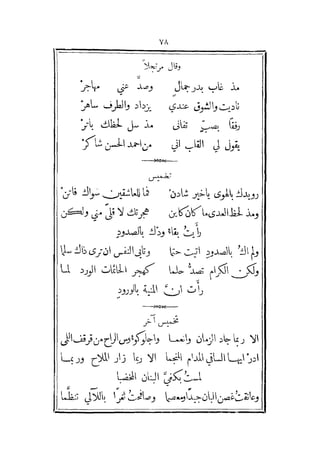 ٧٨
وقال مرتجلاً
مذ غاب بدر جمالٍ وصدَّ عني مهاجرْ
ناديت والشوق عندي يزداد والطرف ساهرْ
رفقًا بصبٍ تفانى مذ سل لحظك باترْ
يقول لي القلب اني من احمد الحسن شاكرْ
تخميس
رويدك بالهوى ياخير شادنْ فما للعاشقين سواك فاتنْ
ومذ لحظ العدى ما كان كاين هجرتك لا قلىً مني ولكن
رأيت بقاء ودك بالصدودِ
ولم اكُ بالصدود اتيت حتما وتابى النفس ان ترى ذاك سلما
ولكن الكرام تصدُّ حلما كهجر الحائمات الورد لما
رأت انَّ المنية بالورودِ
تخميس آخر
الا ربما جاد الزمان وانعما واجلو كؤوس الراح من قرقف اللمى
ادرْ ايها الساقي المدام المنجما الا ربما زار الملاح وربما
لمست بكفيَّ البنان المخضبا
وعانقت غصن البان جيدًا ومعصما وصافحت ثغرًا باللآلي تنظَّما